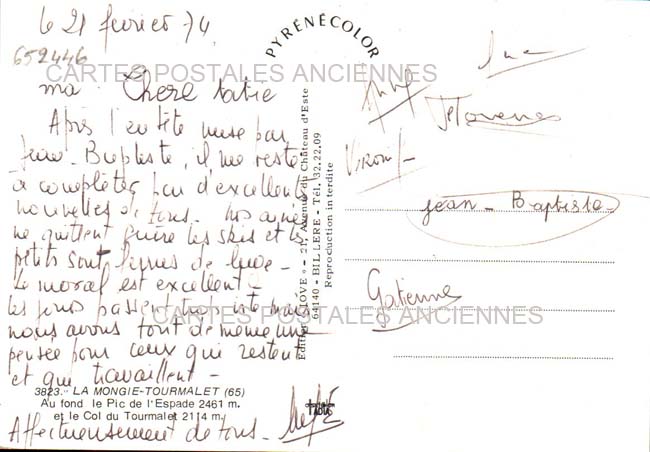 le 21 février 74
652446
CARTES POSTALES ANCIENNES
ma Chere tatie
Après l'en tête mise par
Jean-Baptiste, il me reste
à compléter par d'excellentes
nouvelles de tous. Nos
ne quittent guère les skis et les
petits sont de luge -
Le moral est excellent -
les jours passent trop vite mais
nous avons tout de même une
pensée pour ceux qui restent
et qui travaillent -
3823. - LA MONGIE-TOURMALET (65)
Au fond le Pic de l'Espade 2461 m.
et le Col du Tourmalet 2114 m.
Affectueusement de tous -
PYRÉNÉCOLOR
Edition « JOVE » - 21, Avenue du Château d'Este
64140 - BILLERE - Tél. 32.22.09
Reproduction interdite
Jean-Baptiste
Gatienne
CARTES POSTALES ANCIENNES